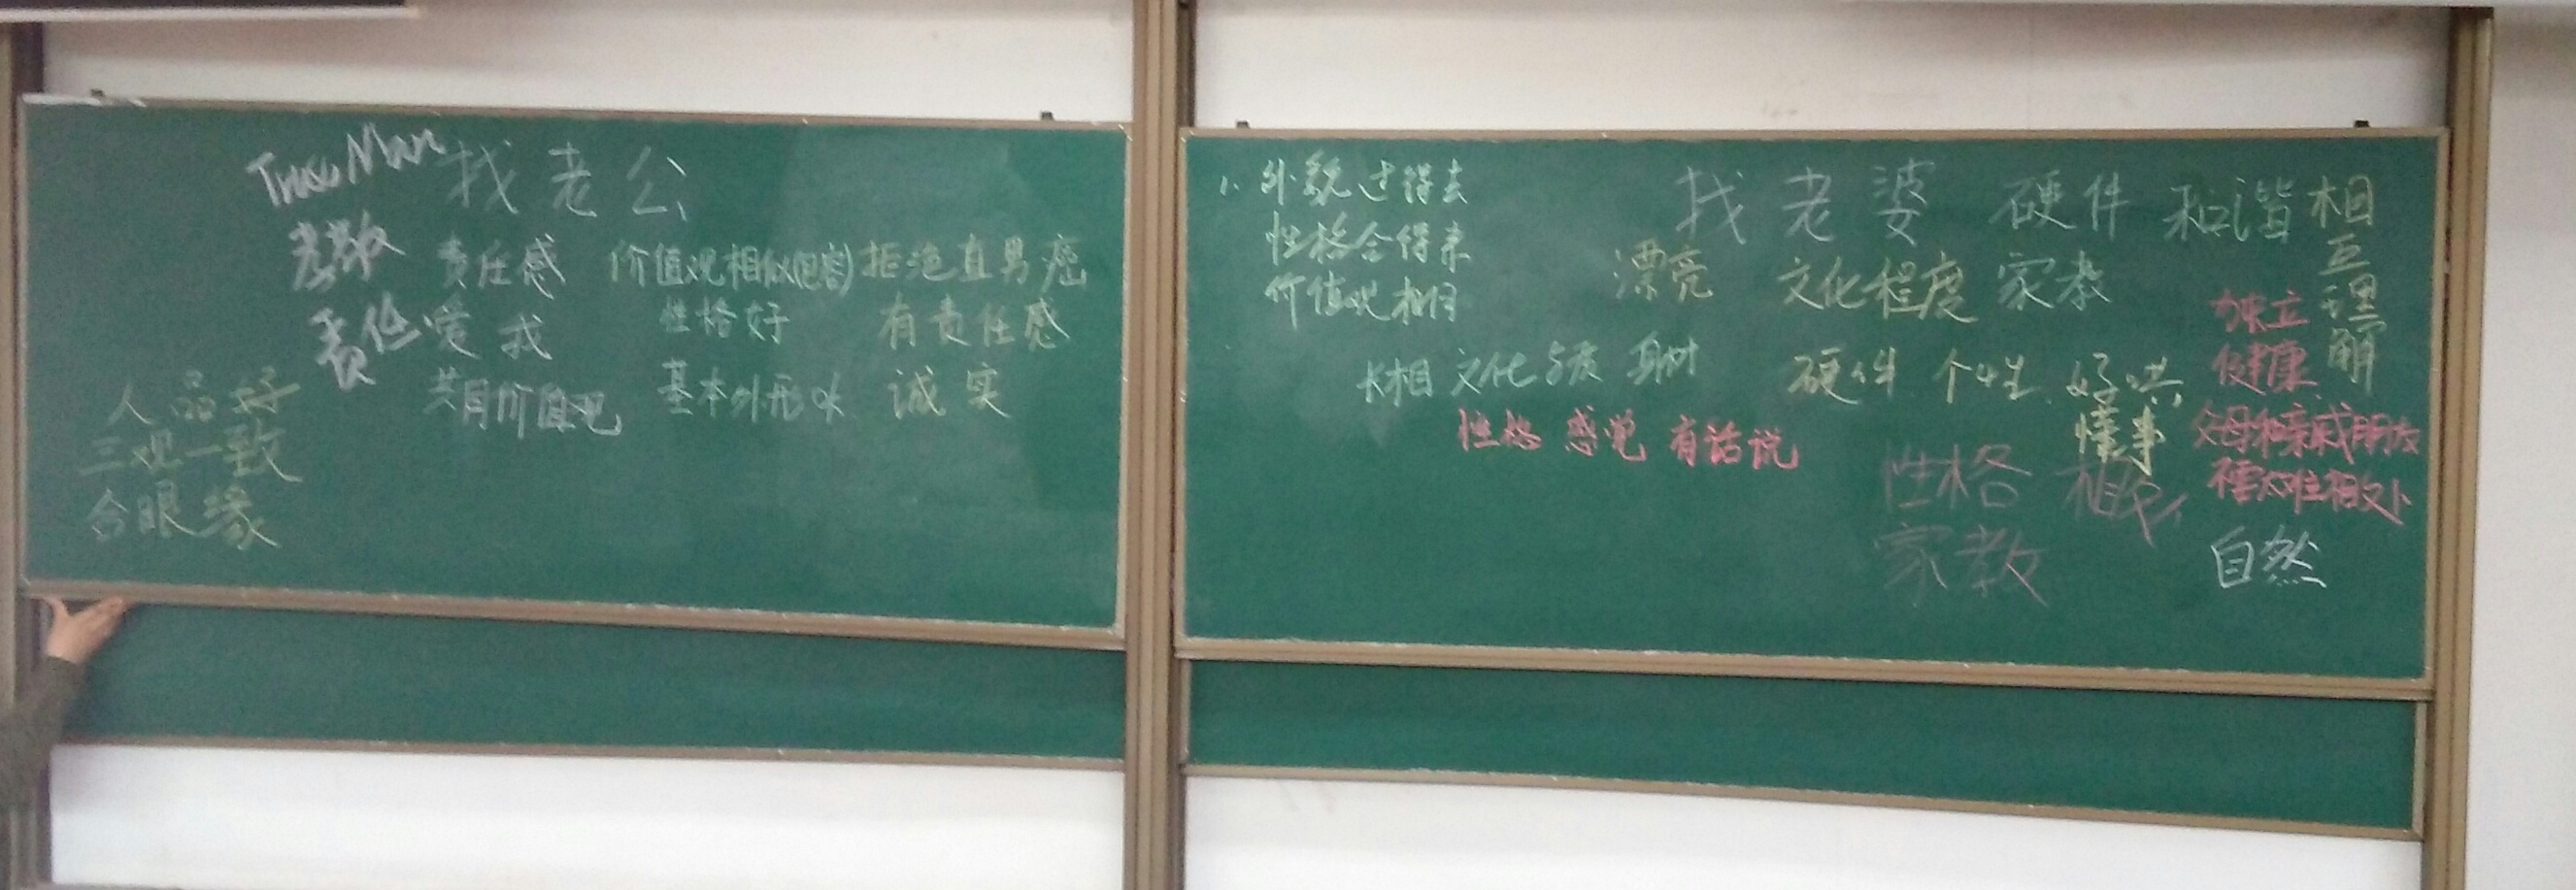 True Man 找老公
孝敬
责任感 价值观相似(包容) 拒绝直男癌
责任 爱我 性格好 有责任感
共同价值观 基本外形ok 诚实
人品好
三观一致
合眼缘
1. 外貌过得去
性格合得来
价值观相同
找老婆 硬件 和谐 相互理解
漂亮 文化程度 家教
独立
健康
长相 文化 身材 硬件 个性 好哄
懂事
性格 感觉 有话说
父母和亲戚朋友
不要太难相处
性格 相似
家教
自然